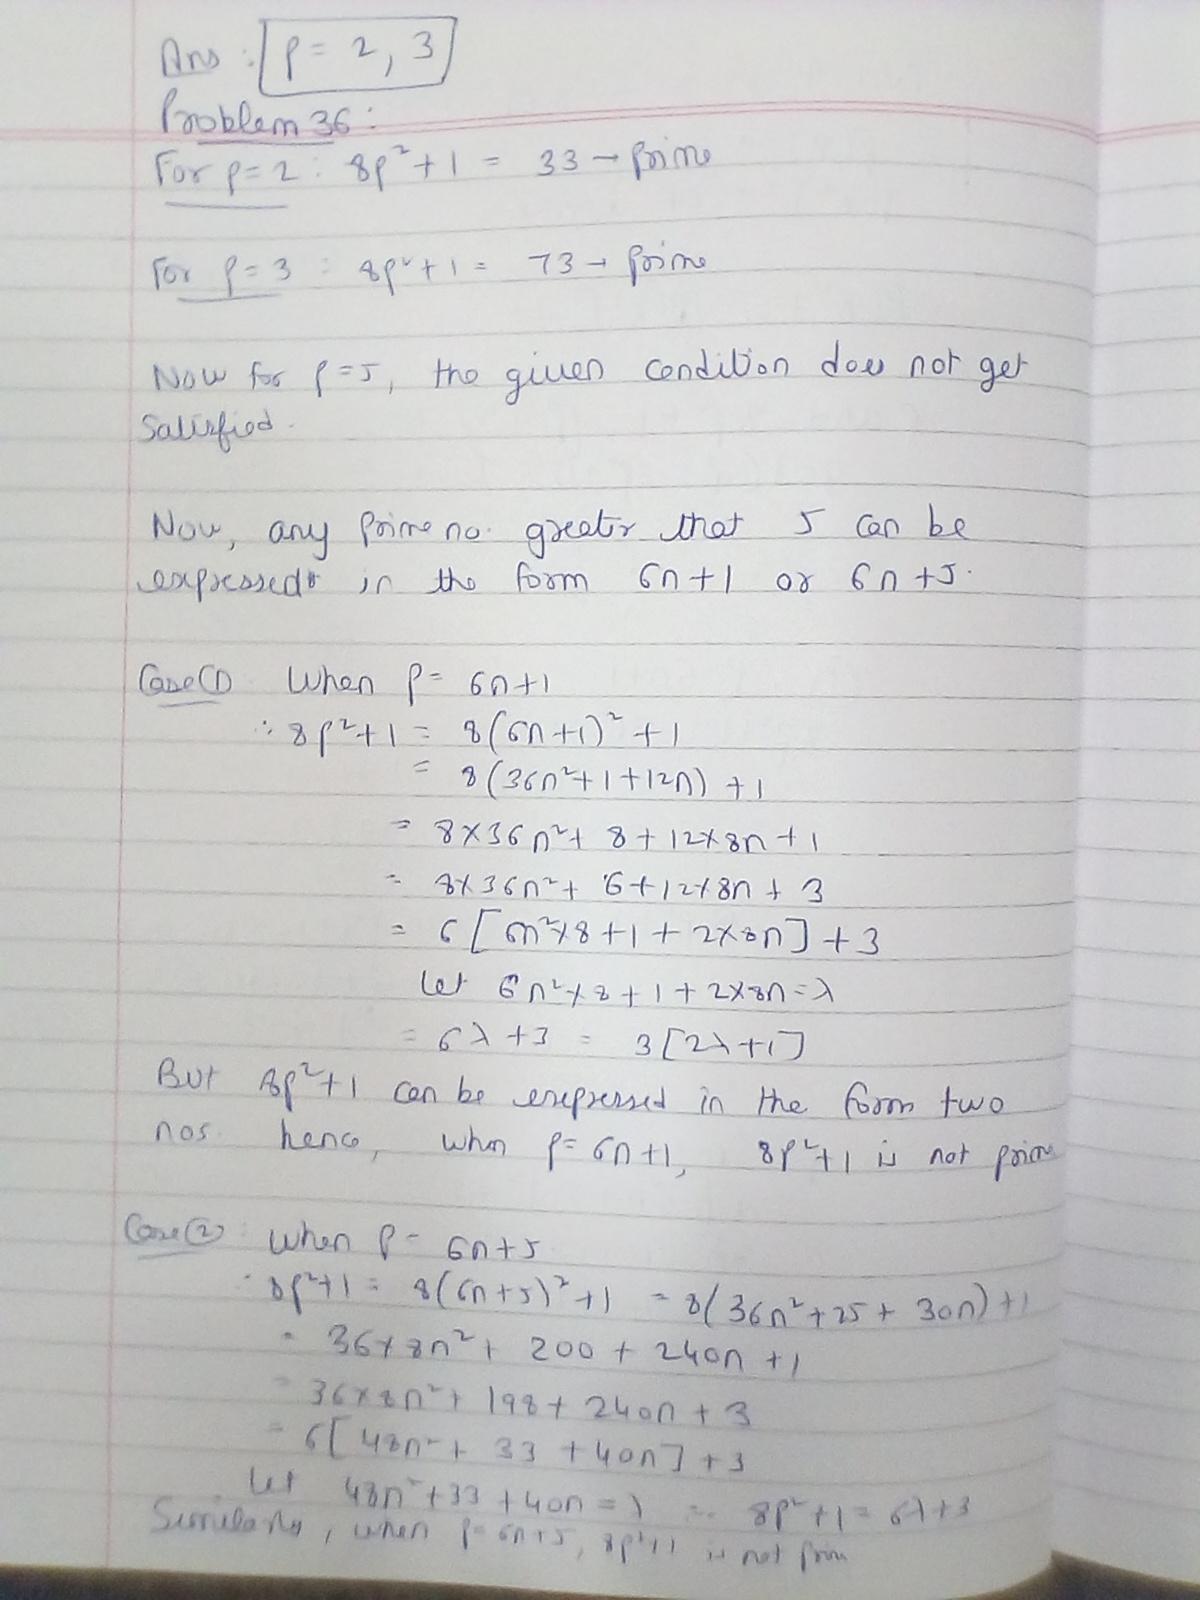 Ans : p = 2, 3
Problem 36 :
For p = 2 : 8p² + 1 = 33 → prime
For p = 3 : 8p² + 1 = 73 → prime
Now for p = 5, the given condition does not get
satisfied.
Now, any prime no. greater that 5 can be
expressed in the form 6n + 1 or 6n + 5.
Case (1) When p = 6n + 1
∴ 8p² + 1 = 8(6n + 1)² + 1
= 8(36n² + 1 + 12n) + 1
= 8×36n² + 8 + 12×8n + 1
= 8×36n² + 6 + 12×8n + 3
= 6[6n²×8 + 1 + 2×8n] + 3
Let 6n²×8 + 1 + 2×8n = λ
= 6λ + 3 = 3[2λ + 1]
But 8p² + 1 can be expressed in the form two
nos. hence, when p = 6n + 1, 8p² + 1 is not prime
Case (2) : When p = 6n + 5
∴ 8p² + 1 = 8(6n + 5)² + 1 = 8(36n² + 25 + 30n) + 1
= 36×8n² + 200 + 240n + 1
= 36×8n² + 198 + 240n + 3
= 6[48n² + 33 + 40n] + 3
Let 48n² + 33 + 40n = λ ∴ 8p² + 1 = 6λ + 3
Similarly, when p = 6n + 5, 8p² + 1 is not prim